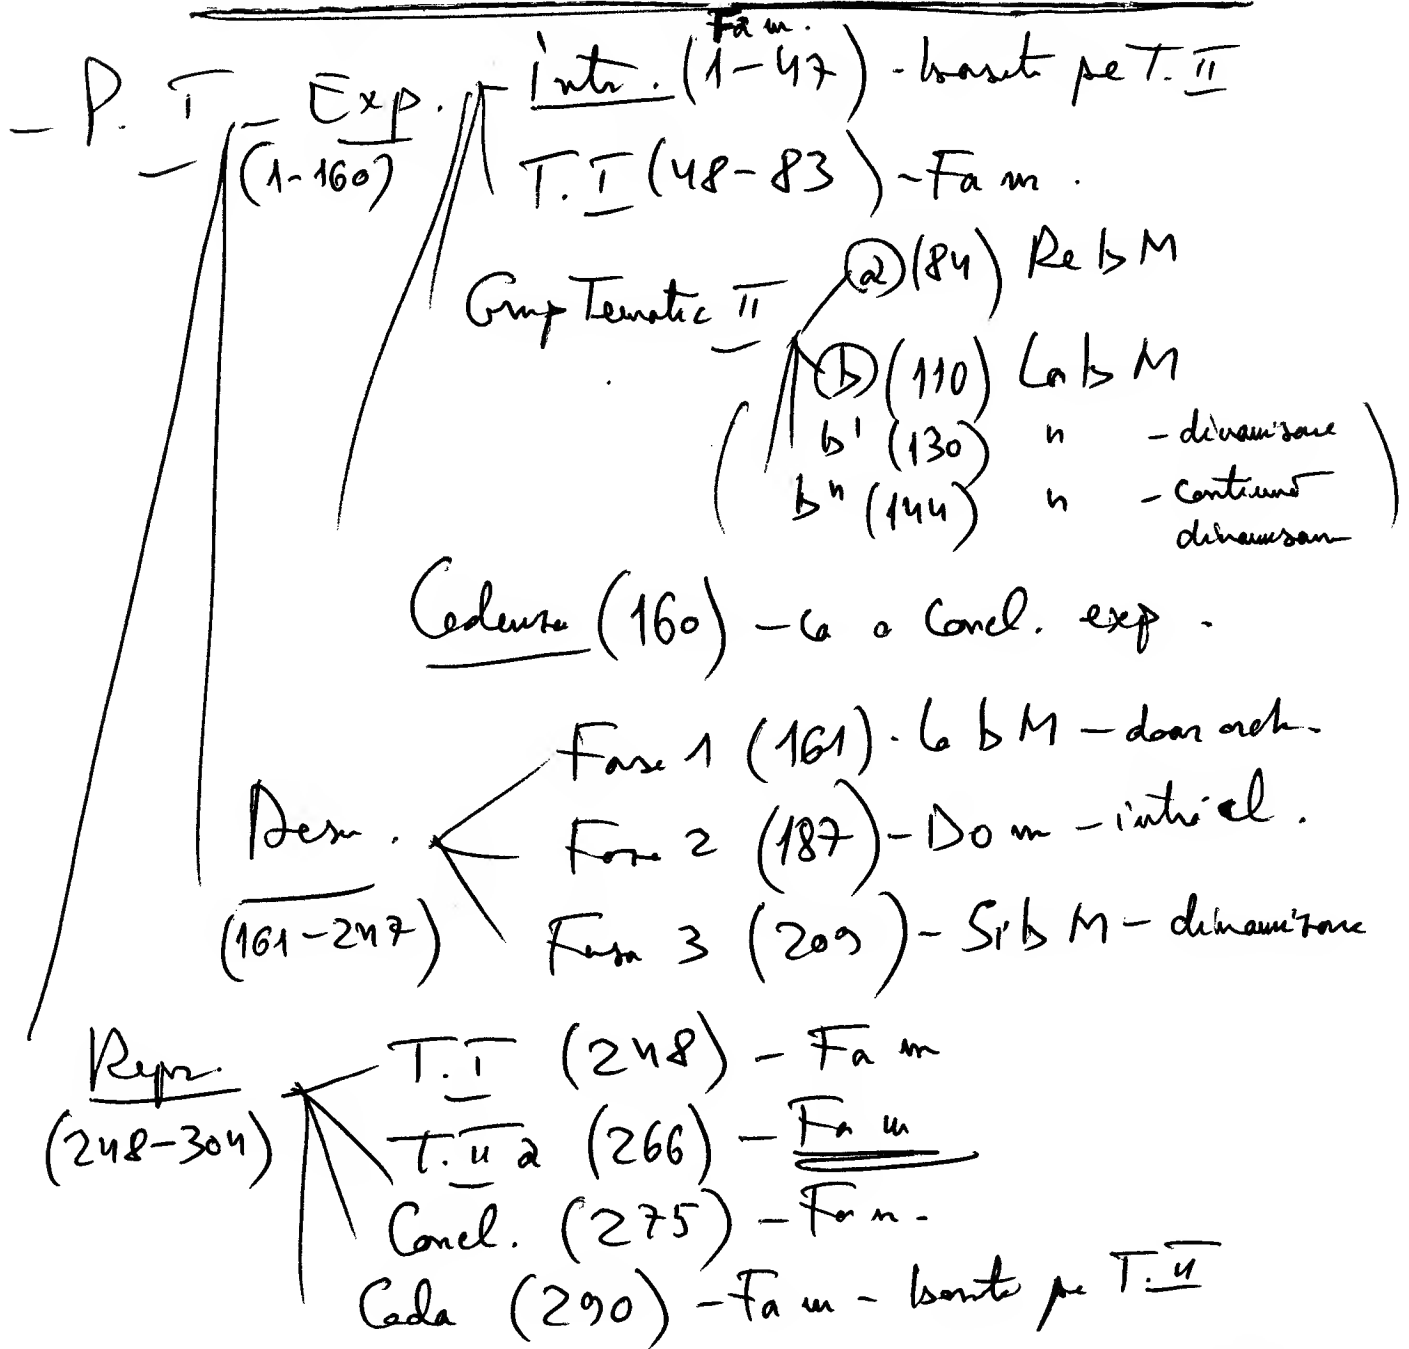 Fa m.
– P. I – Exp. – intr. (1–47) – bazată pe T. II
(1-160) T. I (48–83) – Fa m.
Grup Tematic II a (84) Re b M
b (110) La b M
( b' (130) " – dinamizare )
b" (144) " – continuă
dinamizarea
Cadenza (160) – ca o concl. exp.
Faza 1 (161) – La b M – doar orch.
Dezv. Faza 2 (187) – Do m – intră cl.
(161–247) Faza 3 (209) – Si b M – dinamizare
Repr. T. I (248) – Fa m
(248–304) T. II a (266) – Fa m
Concl. (275) – Fa m.
Coda (290) – Fa m – bazată pe T. II